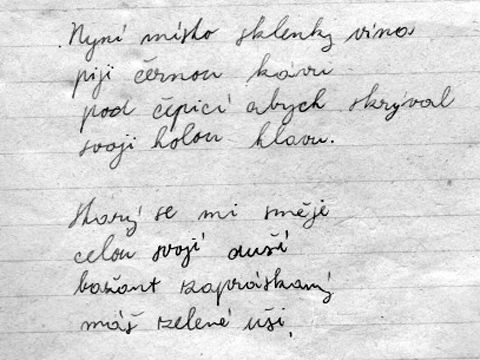 Nyní místo sklenky vína
piji černou kávu
pod čepicí abych skrýval
svoji holou hlavu.
Starý se mi směje
celou svojí duší
bažant zapráskaný
máš zelené uši.